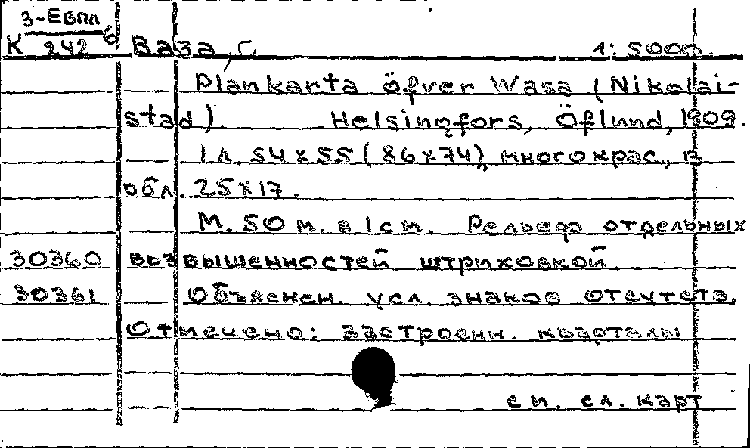 3-Евпл
К 242 б Ваза, г. 1:5000.
Plankarta öfver Wasa (Nikolai-
stad). Helsingfors, Öflund, 1909.
1 л. 54х55 (86х74), многокрас., в
обл. 25х17.
М. 50 м. в 1 см. Рельеф отдельных
30360 возвышенностей штриховкой.
30361 Объяснен. усл. знаков отсутств.
Отмечено: застроенн. кварталы
см. сл. карт